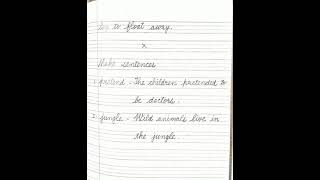 to float away.
x
Make sentences
1. pretend - The children pretended to
be doctors.
2. jungle - Wild animals live in
the jungle.